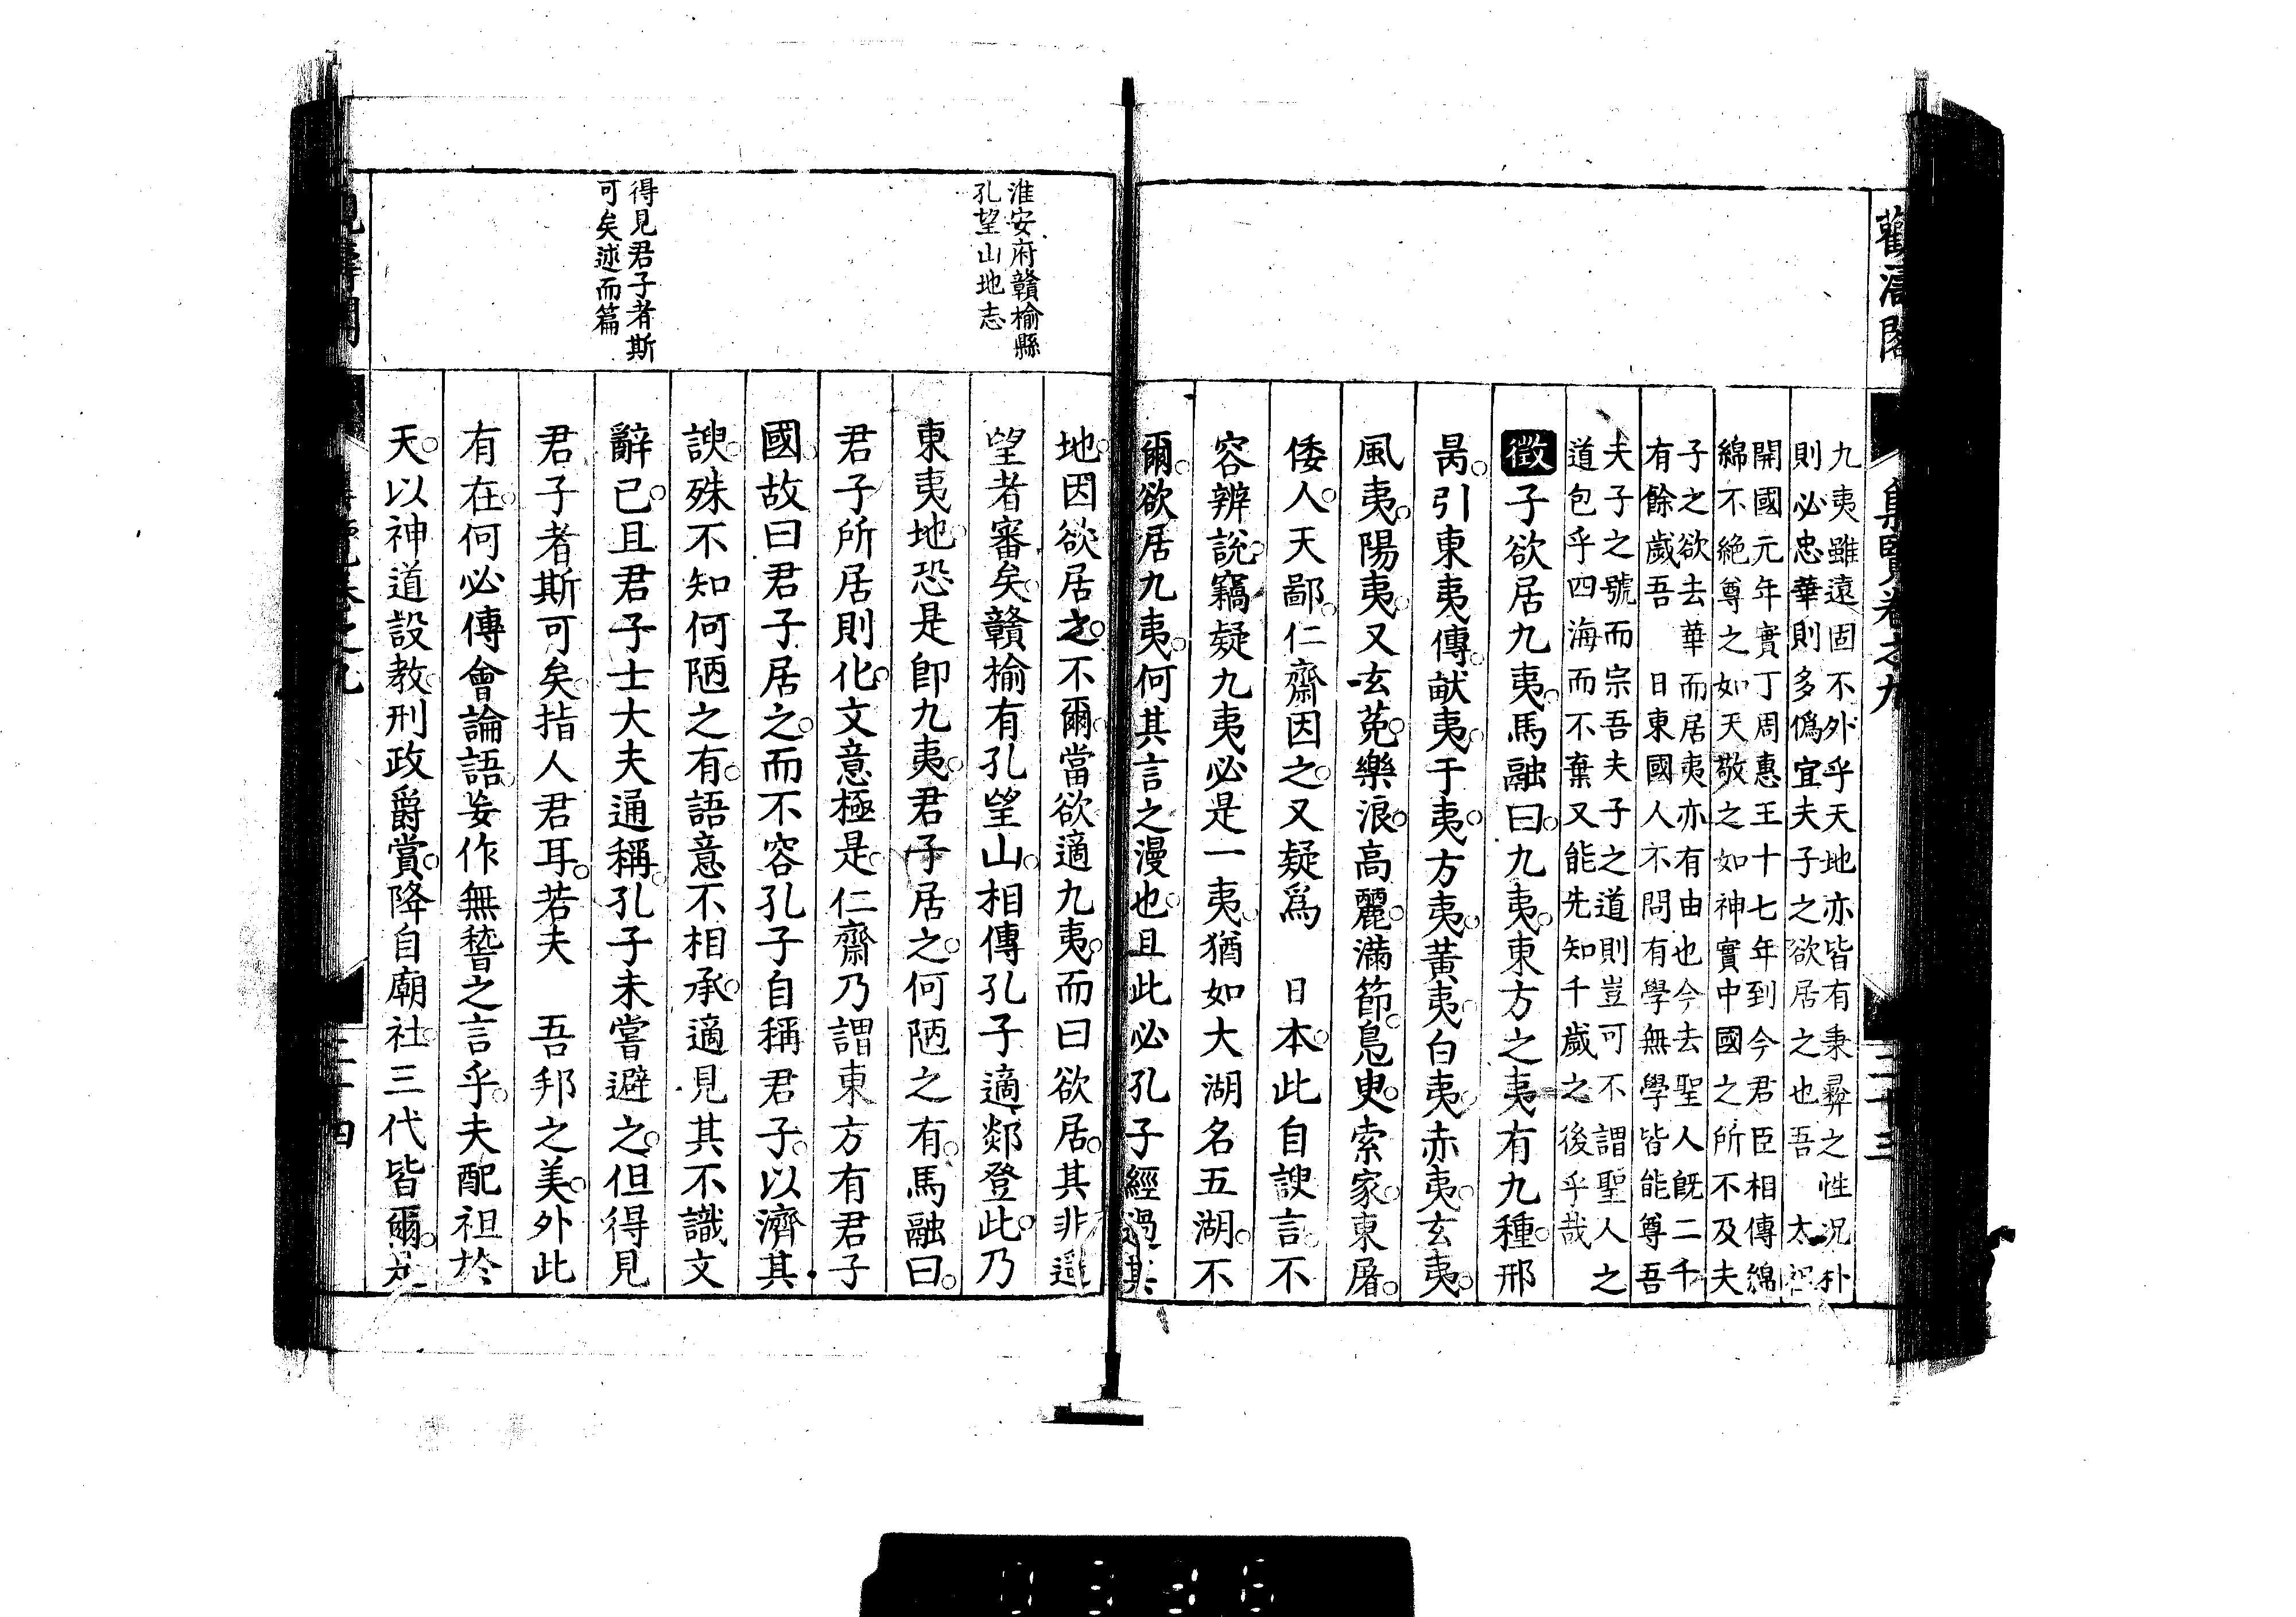 觀濤閣
集覽卷之九
二十三
九夷雖遠固不外乎天地亦皆有秉彛之性况朴
則必忠華則多僞宜夫子之欲居之也吾　太祖
開國元年實丁周惠王十七年到今君臣相傳綿
綿不絶尊之如天敬之如神實中國之所不及夫
子之欲去華而居夷亦有由也今去聖人旣二千
有餘歲吾　日東國人不問有學無學皆能尊吾
夫子之號而宗吾夫子之道則豈可不謂聖人之
道包乎四海而不棄又能先知千歲之後乎哉
徵子欲居九夷。馬融曰。九夷。東方之夷有九種。邢
昺。引東夷傳。畎夷。于夷。方夷。黃夷。白夷。赤夷。玄夷。
風夷。陽夷。又玄菟。樂浪。高麗。滿節。鳧臾。索家。東屠。
倭人。天鄙。仁齋因之。又疑爲　日本。此自諛言。不
容辨說。竊疑九夷必是一夷。猶如大湖名五湖。不
爾。欲居九夷。何其言之漫也。且此必孔子經過其
地。因欲居之。不爾。當欲適九夷。而曰欲居。其非遥
望者審矣。贛榆有孔望山。相傳孔子適郯登此。乃
東夷地。恐是卽九夷。君子居之。何陋之有。馬融曰。
君子所居則化。文意極是。仁齋乃謂東方有君子
國。故曰君子居之。而不容孔子自稱君子。以濟其
諛。殊不知何陋之有。語意不相承。適見其不識文
辭已。且君子士大夫通稱。孔子未嘗避之。但得見
君子者斯可矣。指人君耳。若夫　吾邦之美。外此
有在。何必傅會論語。妄作無稽之言乎。夫配祖於
天。以神道設敎。刑政爵賞。降自廟社。三代皆爾。是
淮安府贛榆縣
孔望山地志
得見君子者斯
可矣述而篇